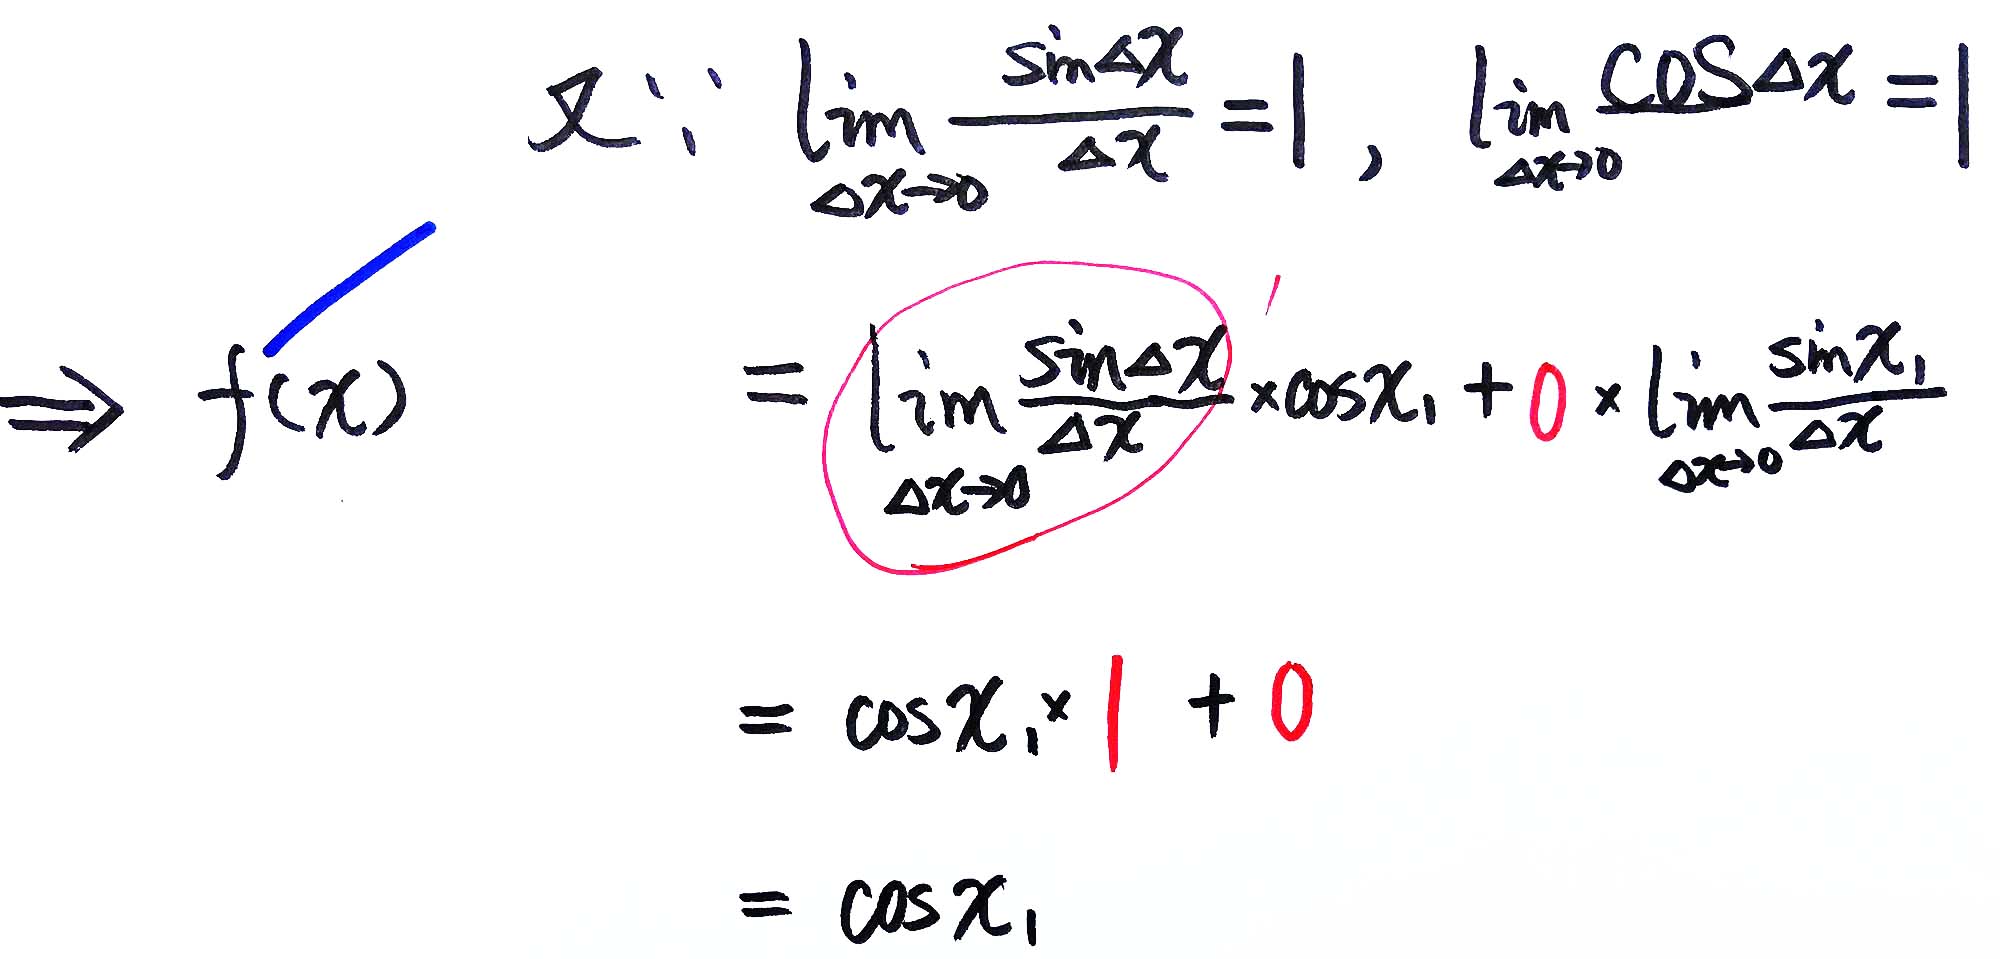 又∵ lim_{Δx→0} sinΔx/Δx = 1, lim_{Δx→0} cosΔx = 1
⇒ f'(x) = lim_{Δx→0} sinΔx/Δx × cosx₁ + 0 × lim_{Δx→0} sinx₁/Δx
= cosx₁ × 1 + 0
= cosx₁